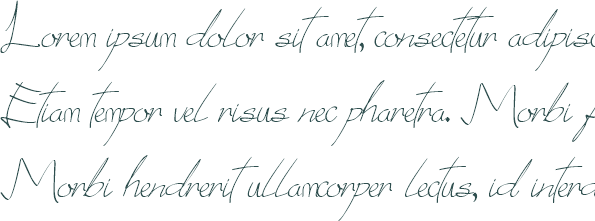 Lorem ipsum dolor sit amet, consectetur adipisc
Etiam tempor vel risus nec pharetra. Morbi f
Morbi hendrerit ullamcorper lectus, id interd